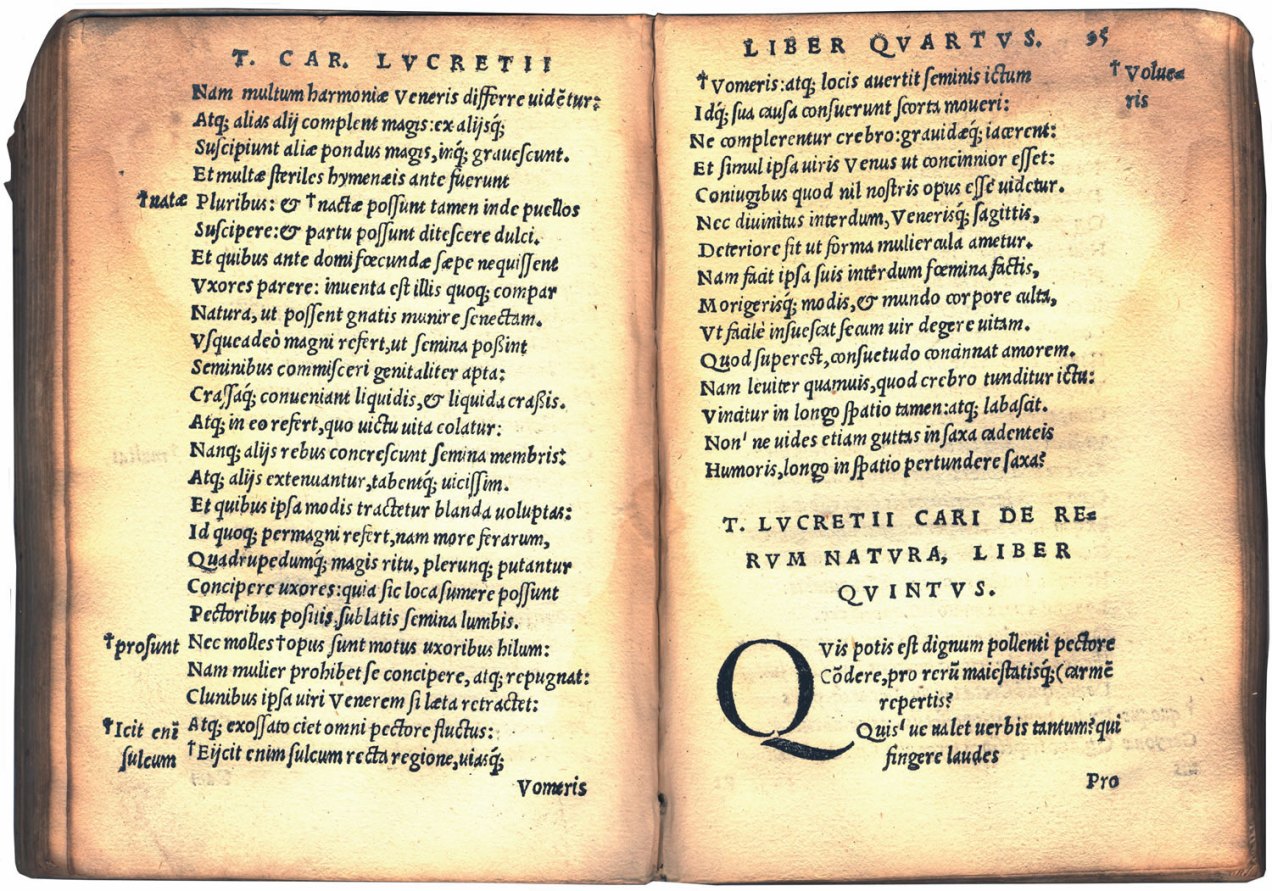 T. CAR. LVCRETII
Nam multum harmoniæ Veneris differre uidētur:
Atq; alias alij complent magis: ex alijsq́;
Suſcipiunt aliæ pondus magis, inq́; graueſcunt.
Et multæ ſteriles hymenæis ante fuerunt
†natæ Pluribus: & †nactæ poſſunt tamen inde puellos
Suſcipere: & partu poſſunt diteſcere dulci.
Et quibus ante domi fœcundæ ſæpe nequiſſent
Vxores parere: inuenta eſt illis quoq; compar
Natura, ut poſſent gnatis munire ſenectam.
Vſqueadeò magni refert, ut ſemina poßint
Seminibus commiſceri genitaliter apta:
Craſſaq́; conueniant liquidis, & liquida craßis.
Atq; in eo refert, quo uictu uita colatur:
Nanq; alijs rebus concreſcunt ſemina membris:
Atq; alijs extenuantur, tabentq́; uiciſſim.
Et quibus ipſa modis tractetur blanda uoluptas:
Id quoq; permagni refert, nam more ferarum,
Quadrupedumq́; magis ritu, plerunq; putantur
Concipere uxores: quia ſic loca ſumere poſſunt
Pectoribus poſitis, ſublatis ſemina lumbis.
†proſunt Nec molles †opus ſunt motus uxoribus hilum:
Nam mulier prohibet ſe concipere, atq; repugnat:
Clunibus ipſa uiri Venerem ſi læta retractet:
†Icit enī Atq; exoſſato ciet omni pectore fluctus:
ſulcum †Eijcit enim ſulcum recta regione, uiasq́;
Vomeris
LIBER QVARTVS. 95
†Vomeris: atq; locis auertit ſeminis ictum †Voluca=
Idq́; ſua cauſa conſuerunt ſcorta moueri: ris
Ne complerentur crebro: grauidæq́; iacerent:
Et ſimul ipſa uiris Venus ut concinnior eſſet:
Coniugibus quod nil noſtris opus eſſe uidetur.
Nec diuinitus interdum, Venerisq́; ſagittis,
Deteriore fit ut forma muliercula ametur.
Nam facit ipſa ſuis interdum fœmina factis,
Morigerisq́; modis, & mundo corpore culta,
Vt facilè inſueſcat ſecum uir degere uitam.
Quod ſupereſt, conſuetudo concinnat amorem.
Nam leuiter quamuis, quod crebro tunditur ictu:
Vincitur in longo ſpatio tamen: atq; labaſcit.
Non' ne uides etiam guttas in ſaxa cadenteis
Humoris, longo in ſpatio pertundere ſaxa?
T. LVCRETII CARI DE RE=
RVM NATVRA, LIBER
QVINTVS.
QVis potis eſt dignum pollenti pectore
Cōdere, pro rerū maieſtatisq́; (carmē
repertis?
Quis' ue ualet uerbis tantum? qui
fingere laudes
Pro